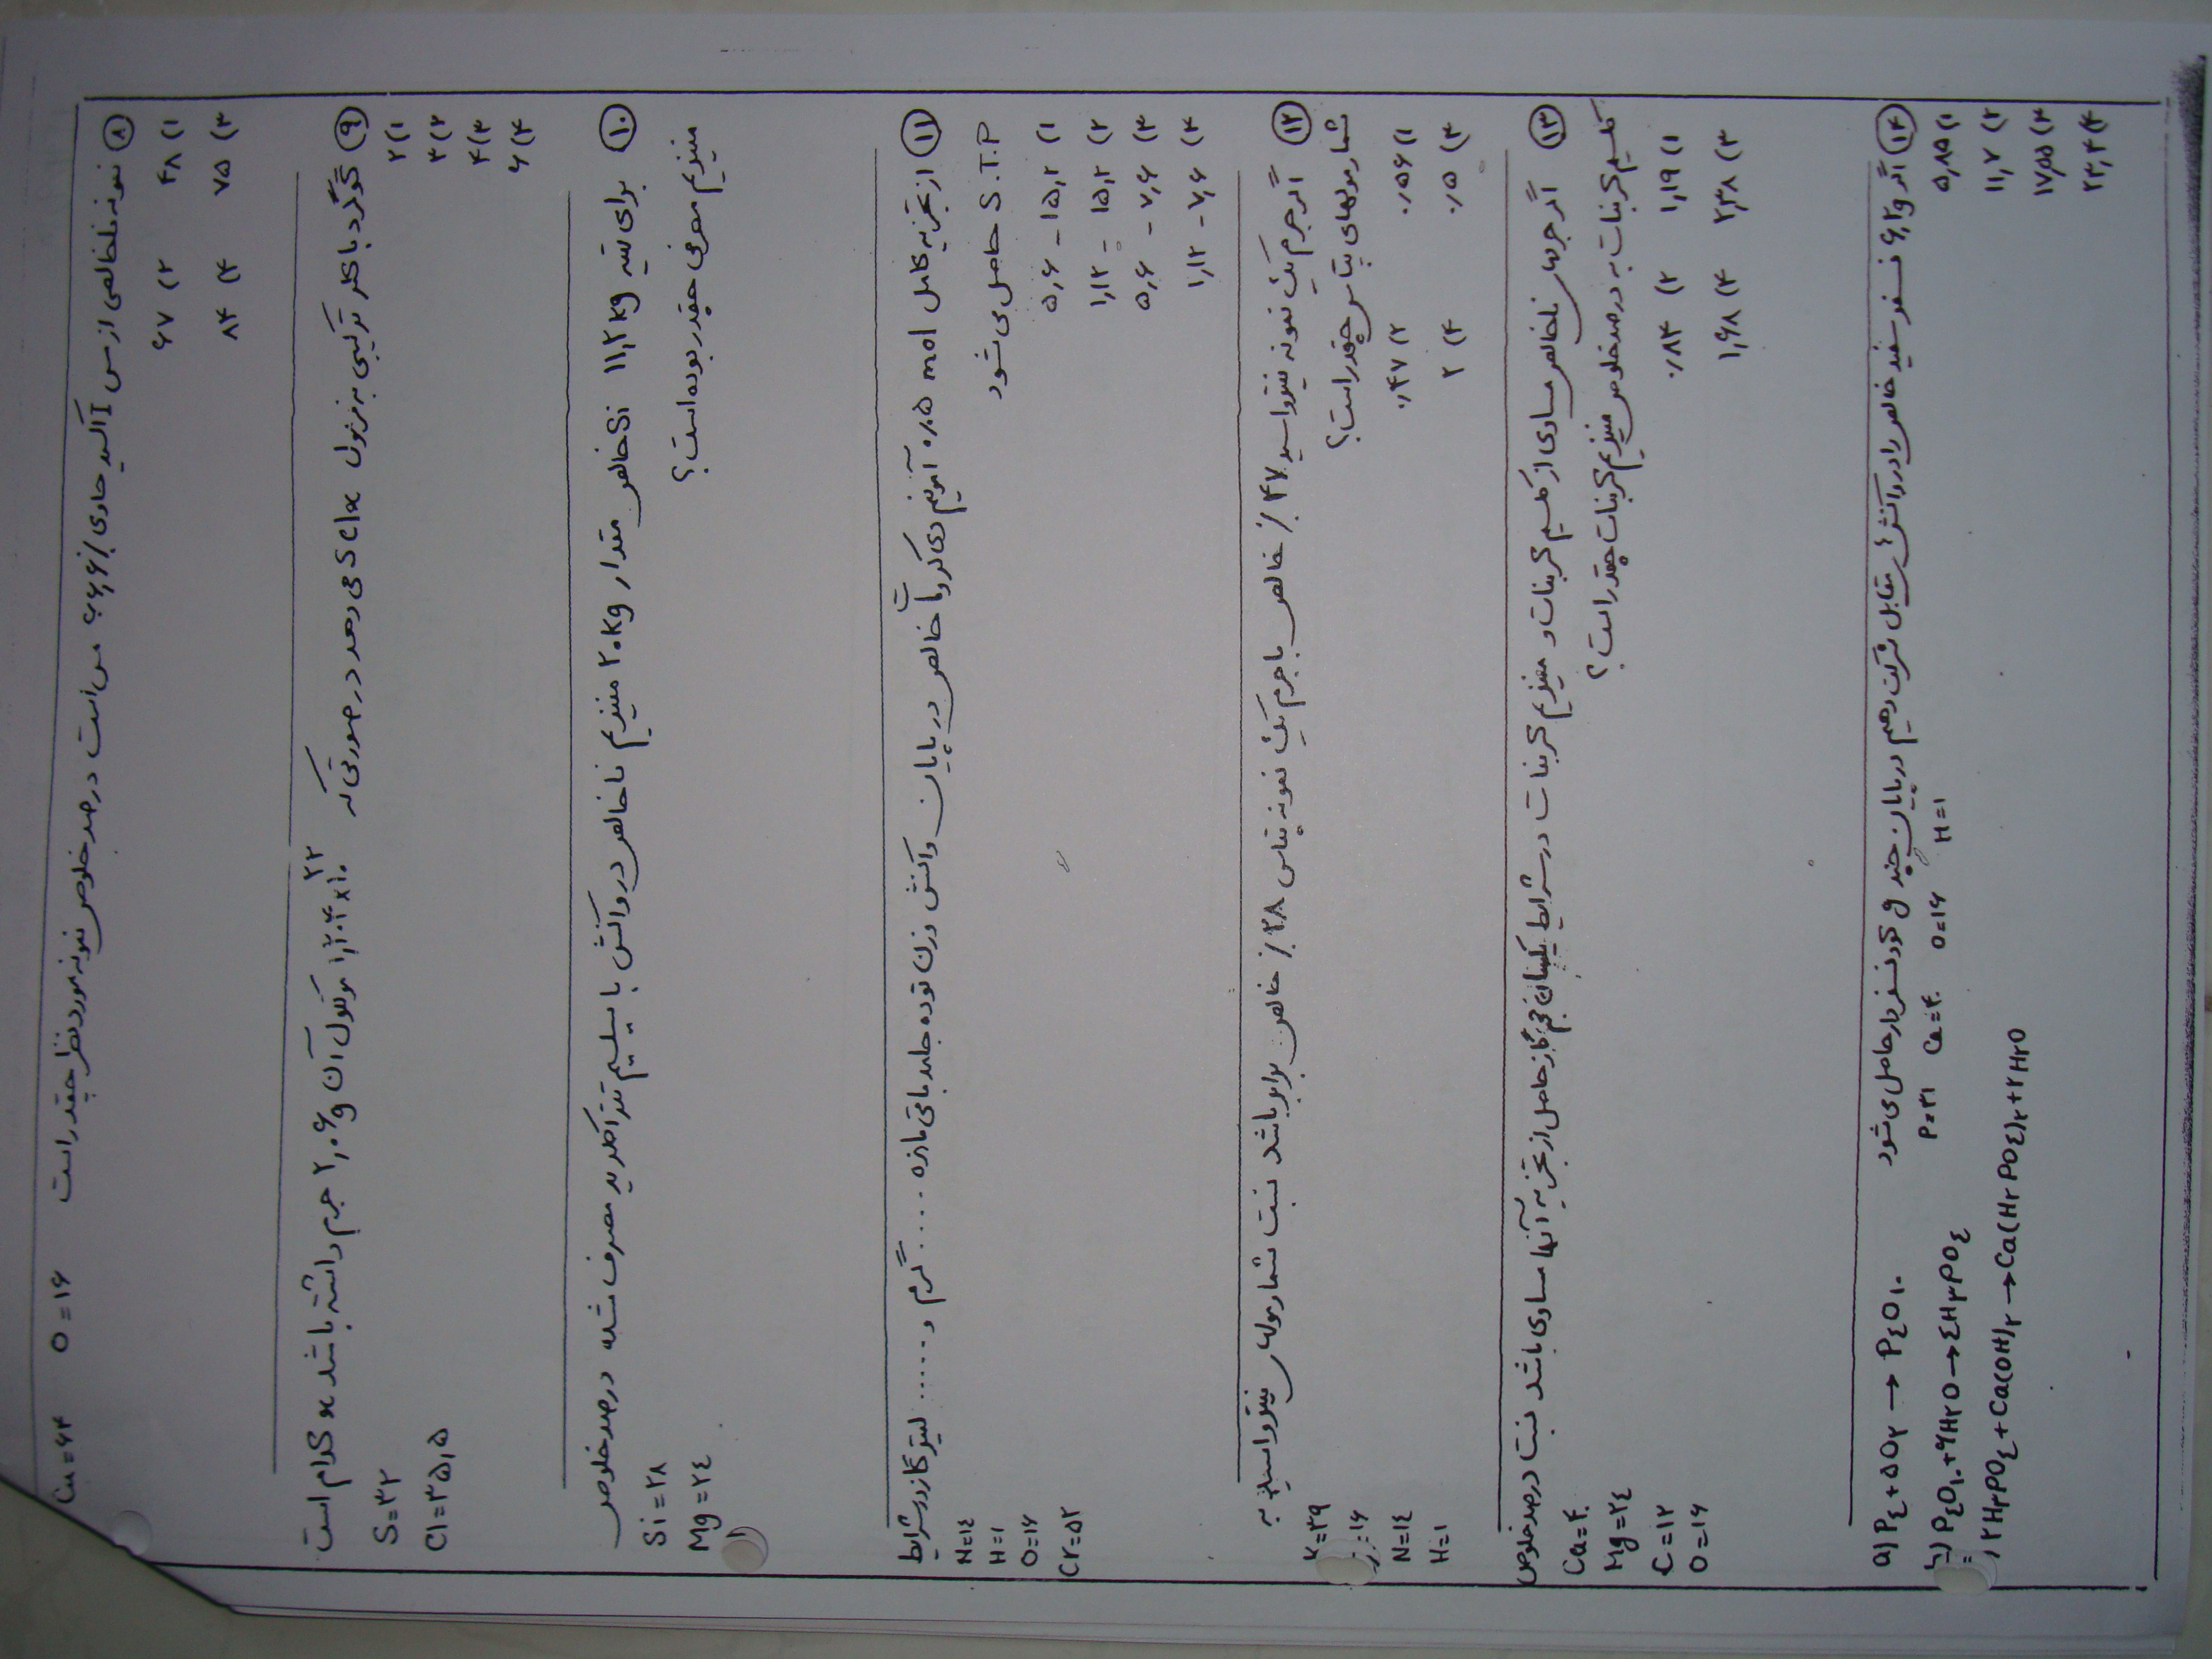 ⑧ نمونه ناخالصی از مس I اکسید حاوی ٪۶۶٫۶ مس است درصد خلوص نمونه مورد نظر چقدر است Cu=۶۴ O=۱۶
۱) ۴۸ ۲) ۶۷
۳) ۷۵ ۴) ۸۴
⑨ گوگرد با کلر ترکیبی به فرمول SClx می دهد در صورتی که ۱٫۲۰۴×۱۰^۲۲ مولکول آن ۲٫۰۶g جرم داشته باشد x کدام است
۱) ۲
۲) ۳
۳) ۴
۴) ۶
S=۳۲
Cl=۳۵٫۵
⑩ برای تهیه ۱۱٫۲kg Si خالص مقدار ۲۰kg منیزیم ناخالص در واکنش با سیلسیم تتراکلرید مصرف شده درصد خلوص
منیزیم مصرفی چقدر بوده است؟
Si=۲۸
Mg=۲٤
⑪ از تجزیه کامل ۰٫۰۵ mol آمونیم دی کرومات خالص در پایان واکنش وزن توده جامد باقی مانده ..... گرم و ..... لیتر گاز در شرایط
S.T.P حاصل می شود
۱) ۱۵٫۲ - ۵٫۶
۲) ۱۵٫۲ - ۱٫۱۲
۳) ۷٫۶ - ۵٫۶
۴) ۷٫۶ - ۱٫۱۲
N=۱٤
H=۱
O=۱۶
Cr=۵۲
⑫ اگر جرم یک نمونه نیترو اسید ٪۴۷ خالص با جرم یک نمونه پتاس ٪۲۸ خالص برابر باشد نسبت شمار مولهای نیترو اسید به
شمار مولهای پتاس چقدر است؟
۱) ۰٫۵۶ ۲) ۰٫۴۷
۳) ۰٫۵ ۴) ۲
K=۳۹
=۱۶
N=۱٤
H=۱
⑬ اگر جرمهای ناخالص مساوی از کلسیم کربنات و منیزیم کربنات در شرایط یکسان حجم گاز حاصل از تجزیه آنها مساوی باشد نسبت درصد خلوص
کلسیم کربنات به درصد خلوص منیزیم کربنات چقدر است؟
۱) ۱٫۱۹ ۲) ۰٫۸۴
۳) ۲٫۳۸ ۴) ۱٫۶۸
Ca=۴۰
Mg=۲٤
C=۱۲
O=۱۶
⑭ اگر ۶٫۲g فسفر سفید خالص را در واکنش های متقابل شرکت دهیم در پایان چند g کود فسفردار حاصل می شود
P=۳۱ Ca=۴۰ O=۱۶ H=۱
۱) ۵٫۸۵
۲) ۱۱٫۷
۳) ۱۷٫۵۵
۴) ۲۳٫۴
a) P٤ + ۵O۲ → P٤O۱۰
b) P٤O۱۰ + ۶H۲O → ٤H۳PO٤
۲H۳PO٤ + Ca(OH)۲ → Ca(H۲PO٤)۲ + ۲H۲O